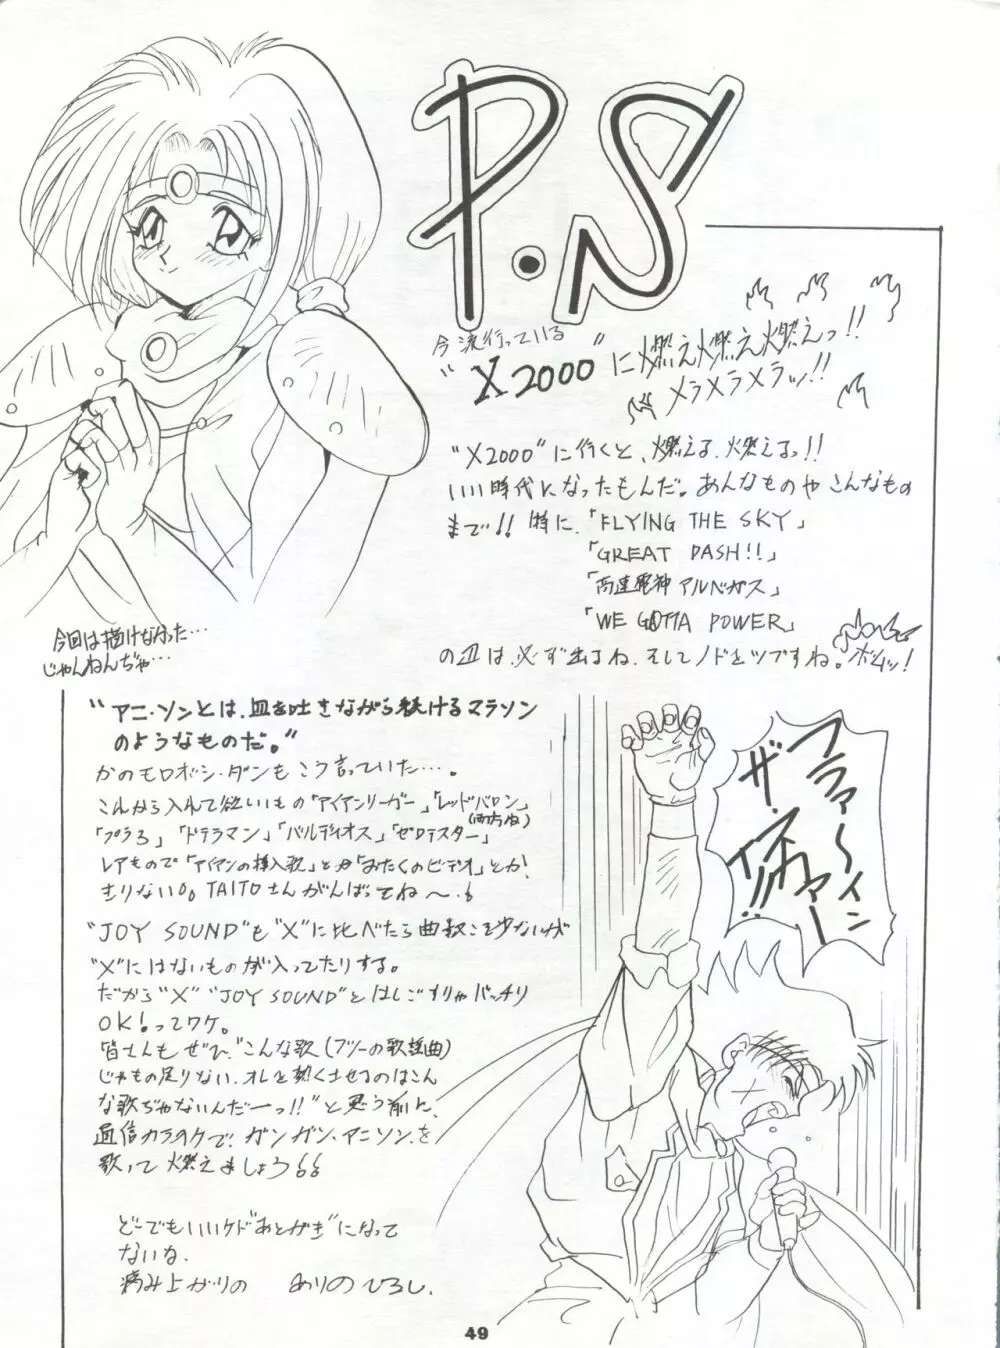 P.S
今流行っている
"X2000"に燃え燃え燃えっ!!
メラメラメラッ!!
"X2000"に行くと、燃える、燃えるっ!!
いい時代になったもんだ。あんなものや こんなもの
まで!! 特に、「FLYING THE SKY」
「GREAT DASH!!」
「高速電神アルベガス」
「WE GOTTA POWER」
の皿は必ず出るね、そしてノドとツブすね。ボムッ!
今回は描けなかった…
じゃんねんぢゃ…
"アニ・ソンとは、血を吐きながら続けるマラソン
のようなものだ。"
かのモロボシ・ダンもこう言っていた…。
これから入れて欲しいもの「アイアンリーガー」「レッドバロン」
(両方ね)
「プラ3」「ドテラマン」「バルディオス」「ゼロテスター」
レアもので「アイアンの挿入歌」とか「おたくのビデオ」とか!
きりない。TAITOさんがんばってね〜
"JOY SOUND"も"X"に比べたら曲数こそ少ないが
"X"にはないものが入ってたりする。
だから"X" "JOY SOUND"とはしごすりゃバッチリ
OK!ってワケ。
皆さんもぜひ、"こんな歌(フツーの歌謡曲)
じゃもの足りない、オレを熱くさせるのはこん
な歌ぢゃないんだーっ!!"と思う前に、
通信カラオケで、ガンガン、アニソンを
歌って燃えましょう
ファ〜イン
ザ・スカァー
イッ!!
どーでもいいけど"あとがき"になって
ないな。
病み上がりの ありのひろし.
49